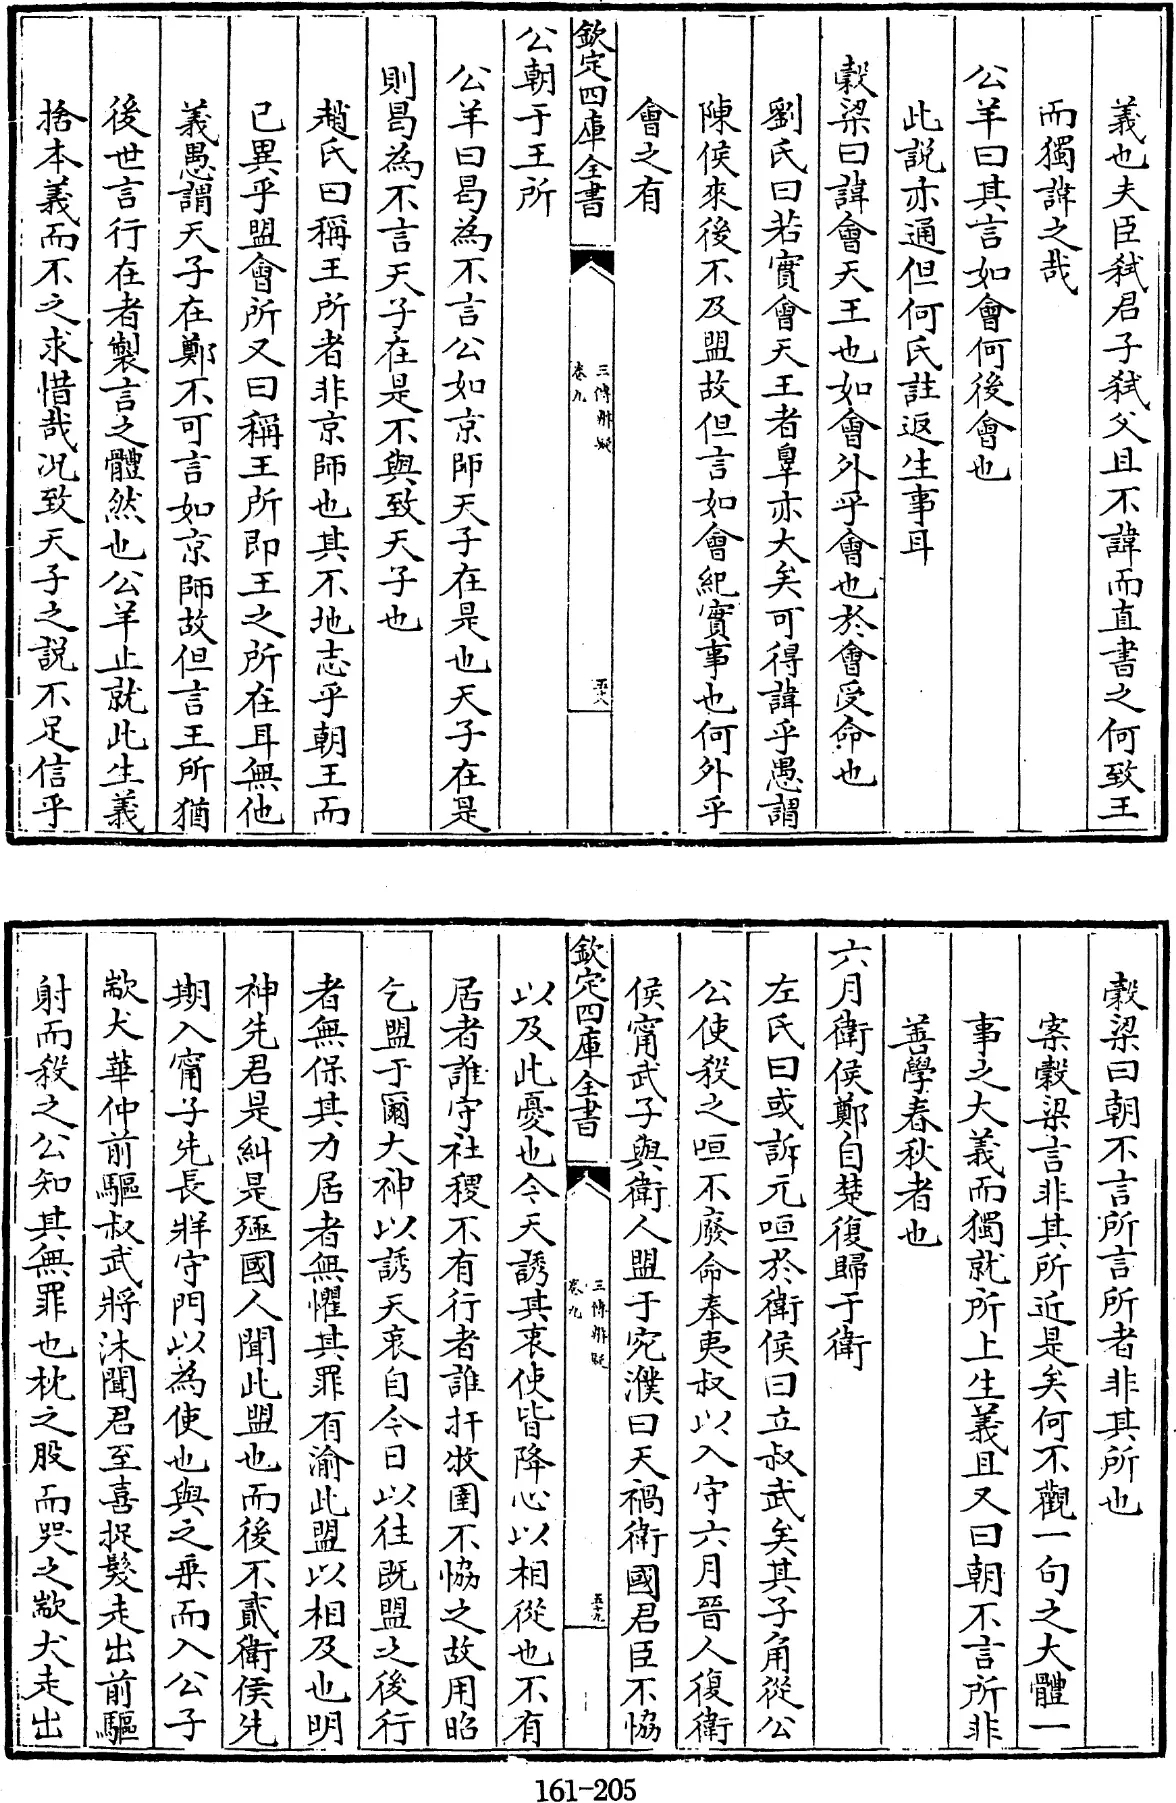 義也夫臣弑君子弑父且不諱而直書之何致王
而獨諱之哉
公羊曰其言如會何後會也
此説亦通但何氏註返生事耳
穀梁曰諱會天王也如會外乎會也於會受命也
劉氏曰若實會天王者辠亦大矣可得諱乎愚謂
陳侯來後不及盟故但言如會紀實事也何外乎
會之有
欽定四庫全書
三傳辨疑
卷九
五十八
公朝于王所
公羊曰曷為不言公如京師天子在是也天子在是
則曷為不言天子在是不與致天子也
趙氏曰稱王所者非京師也其不地志乎朝王而
已異乎盟會所又曰稱王所即王之所在耳無他
義愚謂天子在鄭不可言如京師故但言王所猶
後世言行在者製言之體然也公羊止就此生義
捨本義而不之求惜哉况致天子之説不足信乎
穀梁曰朝不言所言所者非其所也
案穀梁言非其所近是矣何不觀一句之大體一
事之大義而獨就所上生義且又曰朝不言所非
善學春秋者也
六月衛侯鄭自楚復歸于衛
左氏曰或訴元咺於衛侯曰立叔武矣其子角從公
公使殺之咺不廢命奉夷叔以入守六月晉人復衛
侯甯武子與衛人盟于宛濮曰天禍衛國君臣不恊
欽定四庫全書
三傳辨疑
卷九
五十九
以及此憂也今天誘其衷使皆降心以相從也不有
居者誰守社稷不有行者誰扞牧圉不恊之故用昭
乞盟于爾大神以誘天衷自今日以往既盟之後行
者無保其力居者無懼其罪有渝此盟以相及也明
神先君是糾是殛國人聞此盟也而後不貳衛侯先
期入甯子先長牂守門以為使也與之乘而入公子
歂犬華仲前驅叔武將沐聞君至喜捉髮走出前驅
射而殺之公知其無罪也枕之股而哭之歂犬走出
161-205